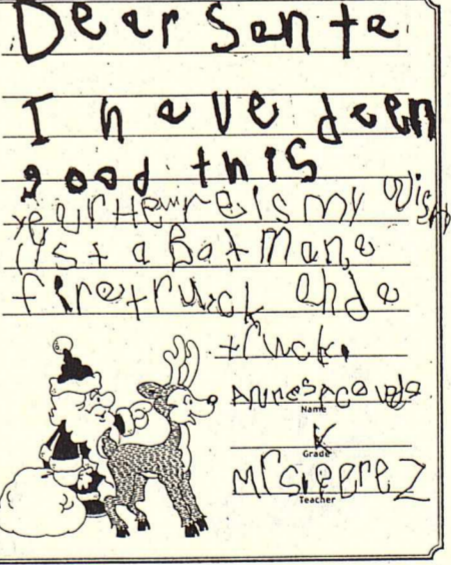 Dear Santa
I have deen
good this
year Here is my Wish
list a Bat Man a
firetruck and a
truck.
Name
K
Grade
Mrs. Perez
Teacher